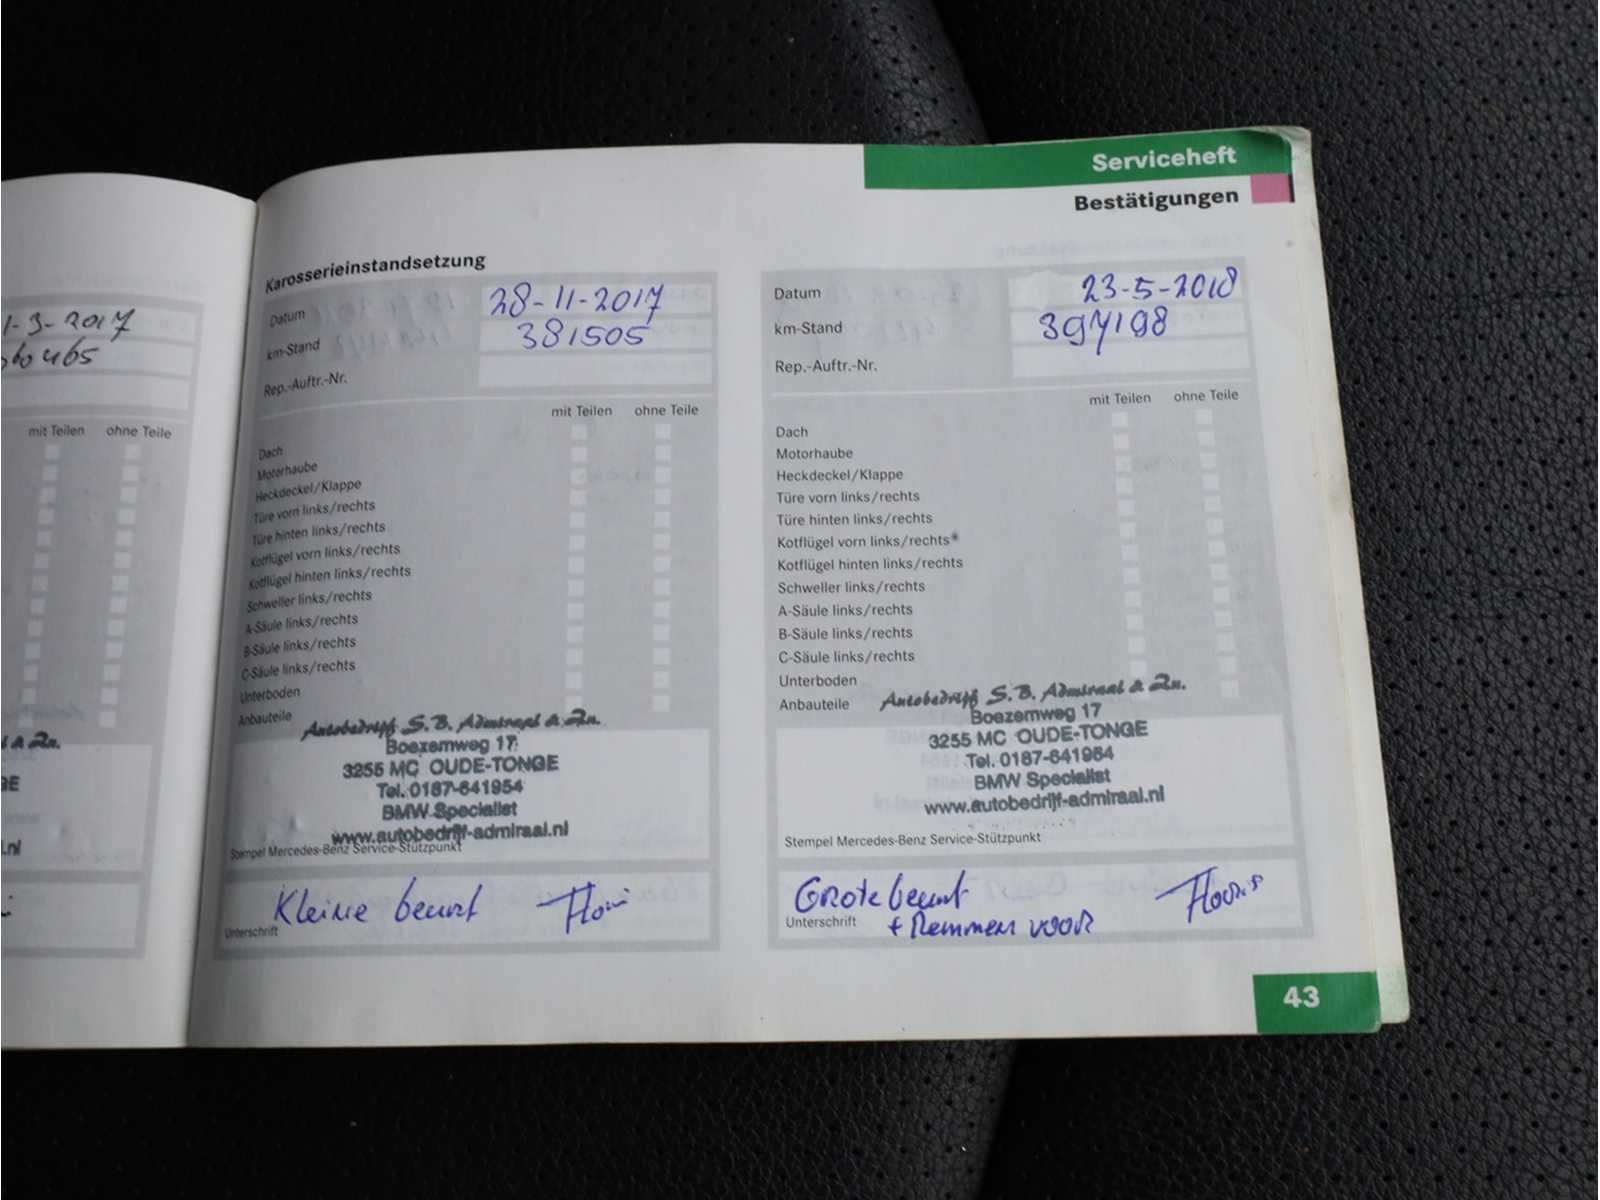 Serviceheft
Bestätigungen
1-3-2017
mit Teilen ohne Teile
Karosserieinstandsetzung
Datum 28-11-2017
km-Stand 381505
Rep.-Auftr.-Nr.
mit Teilen ohne Teile
Dach
Motorhaube
Heckdeckel/Klappe
Türe vorn links/rechts
Türe hinten links/rechts
Kotflügel vorn links/rechts
Kotflügel hinten links/rechts
Schweller links/rechts
A-Säule links/rechts
B-Säule links/rechts
C-Säule links/rechts
Unterboden
Anbauteile
Autobedrijf S.B. Admiraal & Zn.
Boezemweg 17
3255 MC OUDE-TONGE
Tel. 0187-641954
BMW Specialist
www.autobedrijf-admiraal.nl
Stempel Mercedes-Benz Service-Stützpunkt
Kleine beurt
Unterschrift
Datum 23-5-2018
km-Stand 397198
Rep.-Auftr.-Nr.
mit Teilen ohne Teile
Dach
Motorhaube
Heckdeckel/Klappe
Türe vorn links/rechts
Türe hinten links/rechts
Kotflügel vorn links/rechts*
Kotflügel hinten links/rechts
Schweller links/rechts
A-Säule links/rechts
B-Säule links/rechts
C-Säule links/rechts
Unterboden
Anbauteile
Autobedrijf S.B. Admiraal & Zn.
Boezemweg 17
3255 MC OUDE-TONGE
Tel. 0187-641954
BMW Specialist
www.autobedrijf-admiraal.nl
Stempel Mercedes-Benz Service-Stützpunkt
Grote beurt
Unterschrift + Remmen voor
43